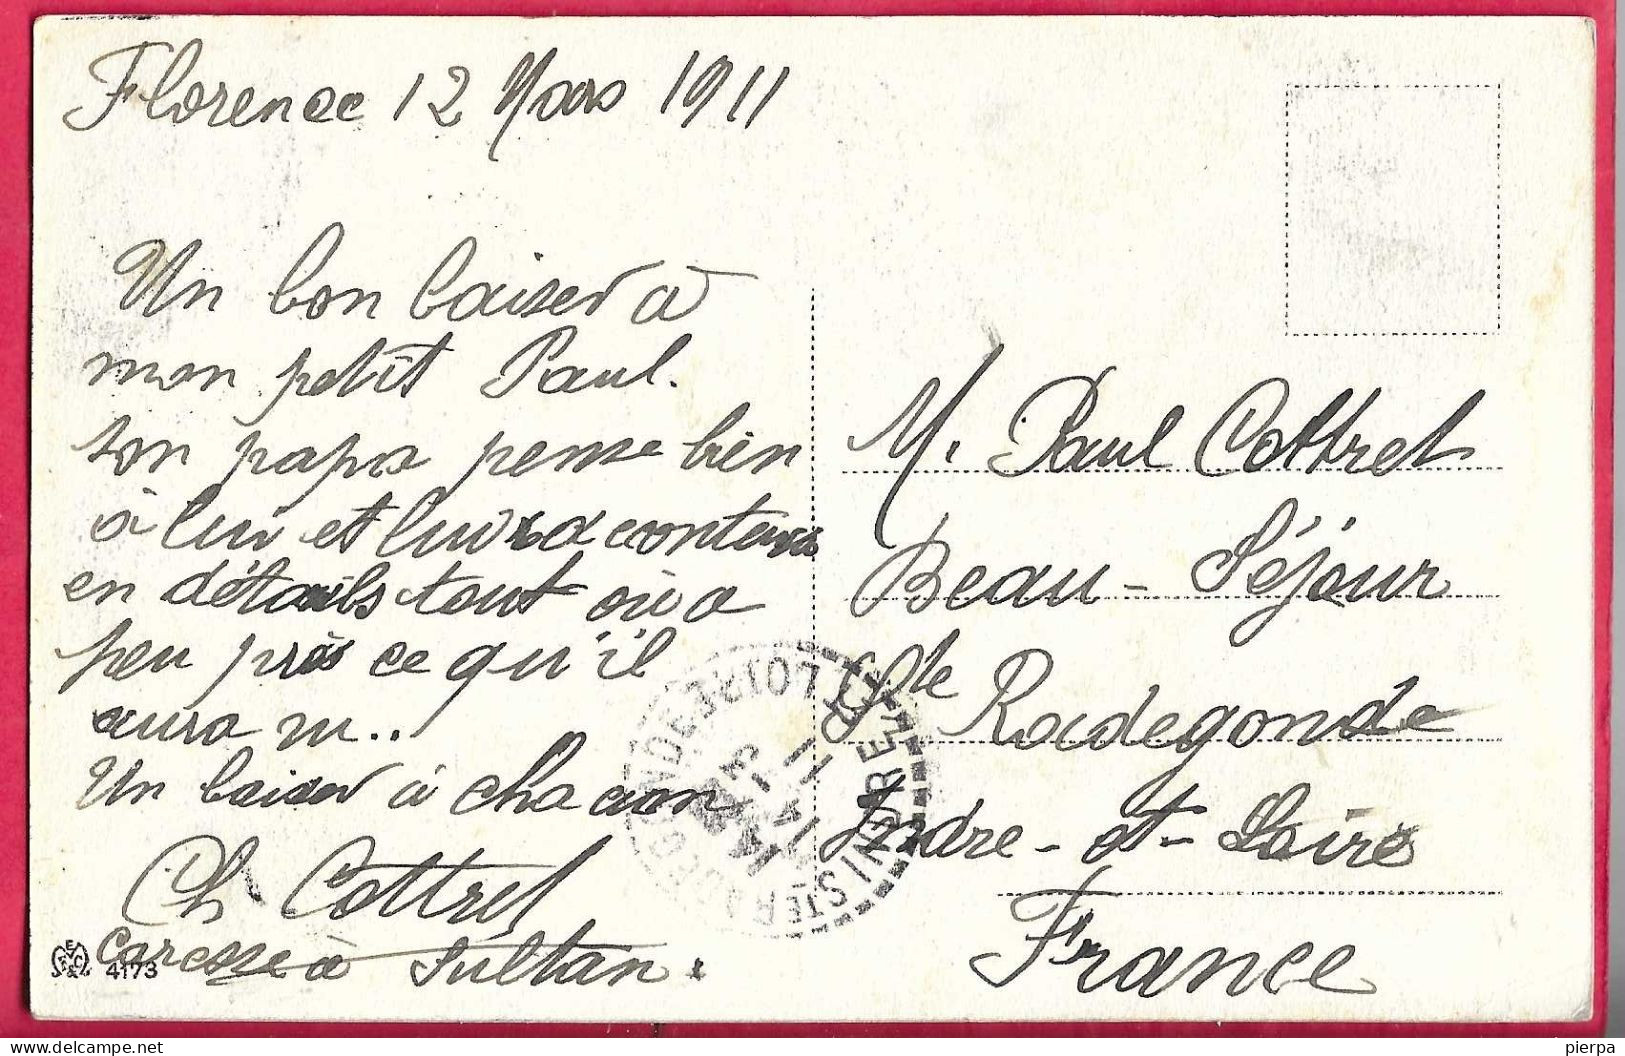 Florence 12 Mars 1911
Un bon baiser à
mon petit Paul.
Son papa pense bien
à lui et lui racontera
en détails tout où a
peu près ce qu'il
aura vu..
Un baiser à chacun
Ch Cottret
Caresse à Sultan.
4173
M. Paul Cottret
Beau-Séjour
Ste Radegonde
Indre-et-Loire
France
STE RADEGONDE
INDRE-ET-LOIRE
pierpa
delcampe.net